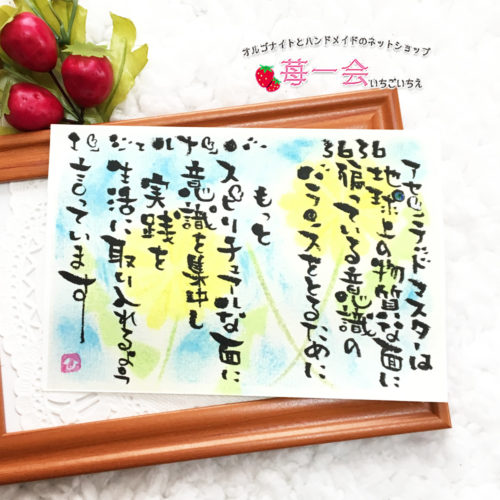 オルゴナイトとハンドメイドのネットショップ
苺一会
いちごいちえ
エンジェルナンバー 3636
アセンデッドマスターは
地球上の物質な面に
偏っている意識の
バランスをとるために
もっと
スピリチュアルな面に
意識を集中し
実践を
生活に取り入れるよう
言っています